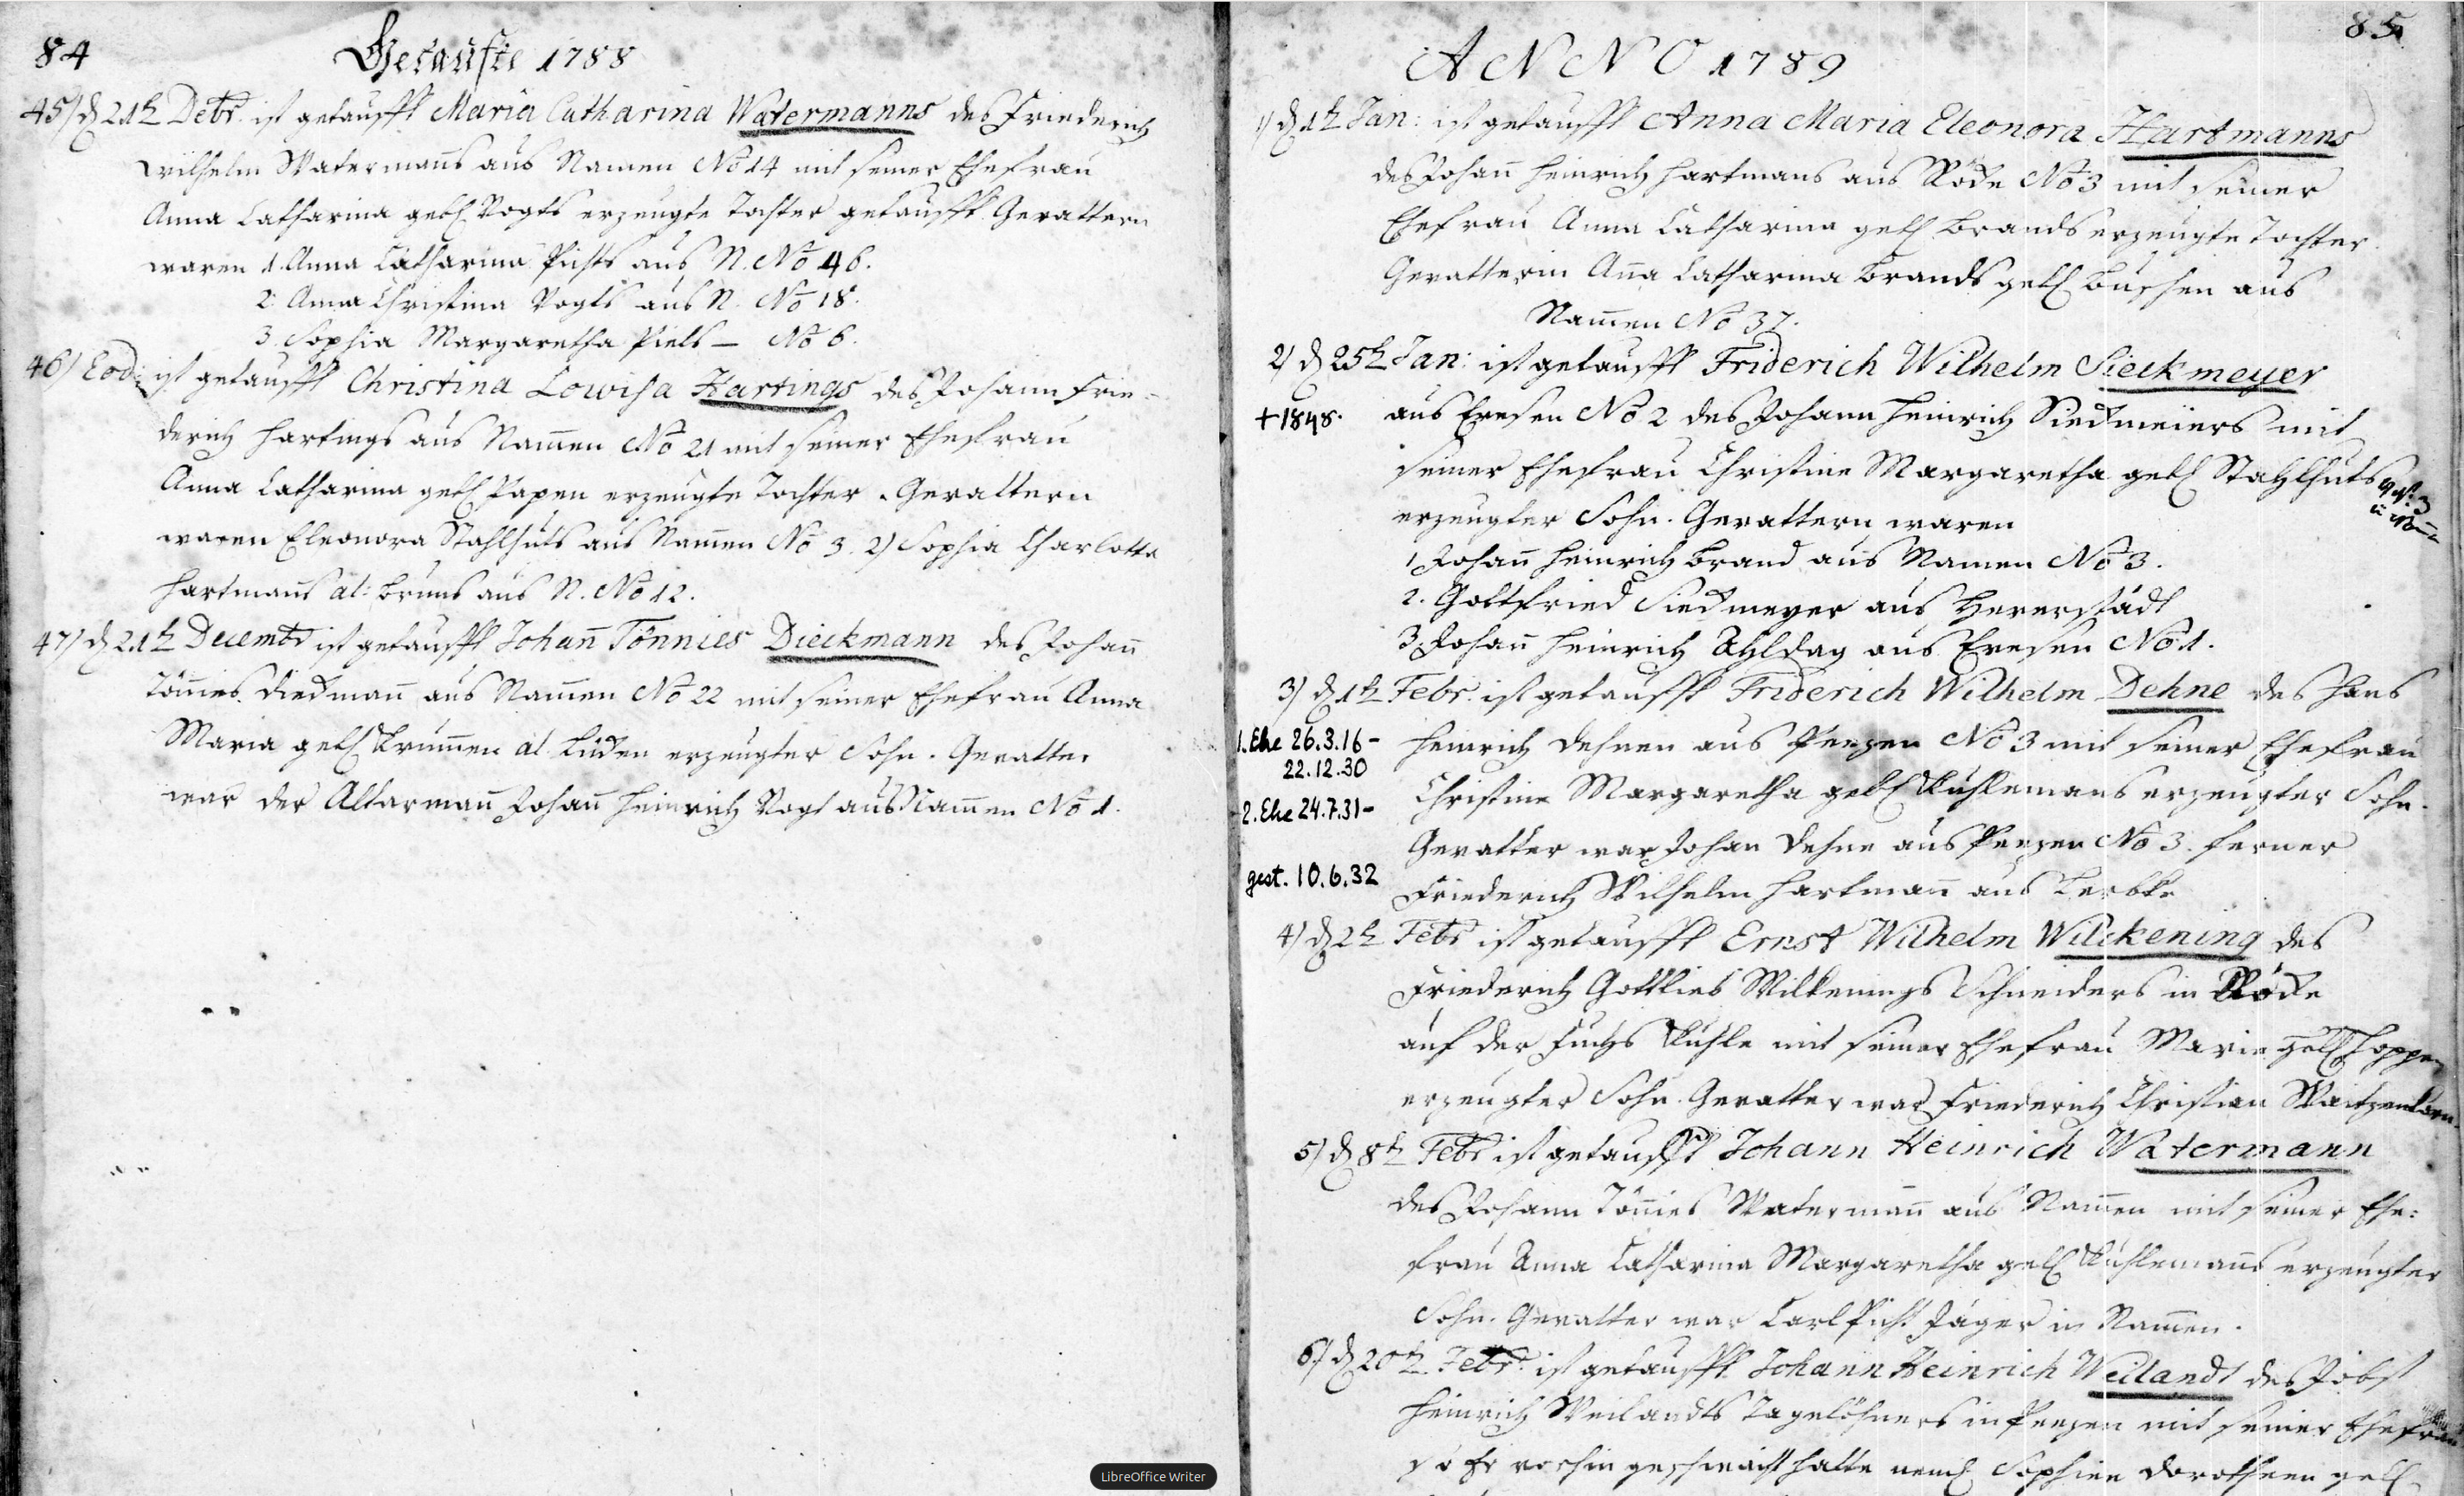 84
Getaufte 1788
45) d 21t Debr. ist getaufft Maria Catharina Watermanns des Friederich
Wilhelm Watermanns aus Nam̅en No 14 mit seiner Ehefrau
Anna Catharina geb. Vogts erzeugte Tochter getaufft. Gevattern
waren 1. Anna Catharina Pichts aus N. No 46.
2. Anna Christina Vogts aus N. No 18.
3. Sophia Margaretha Piels — No 6.
46) Eod: ist getaufft Christina Lowisa Hartings des Johann Frie-
derich Hartings aus Nam̅en No 21 mit seiner Ehefrau
Anna Catharina geb. Papen erzeugte Tochter. Gevattern
waren Eleonora Stahlhuts aus Nam̅en No 3. 2) Sophia Charlotta
Hartman̅s al: Bruns aus N. No 12.
47) d 21t Decembr ist getaufft Johan̅ Tönnies Dieckmann des Johan̅
Tön̅ies Dieckman̅ aus Nam̅en No 22 mit seiner Ehefrau Anna
Maria geb. Krum̅en al. erzeugter Sohn. Gevatter
war der Altarman̅ Johan̅ Heinrich Vogt aus Nam̅en No 1.
85
ANNO 1789
1) d 1t Jan: ist getaufft Anna Maria Eleonora Hartmanns
des Johan̅ Heinrich Hartmans aus Röde No 3 mit seiner
Ehefrau Anna Catharina geb. Brands erzeugte Tochter.
Gevatterin An̅a Catharina Brands geb. Büschen aus
Nam̅en No 37.
2) d 25t Jan: ist getaufft Friderich Wilhelm Sieckmeyer
+ 1848. aus Evesen No 2 des Johann Heinrich Sieckmeiers mit
seiner Ehefrau Christine Margaretha geb. Stahlhuts
erzeugter Sohn. Gevattern waren
1 Johan̅ Heinrich Brand aus Namen No 3.
2. Gottfried Sieckmeyer aus
3 Johan̅ Heinrich Ahldag aus Evesen No 1.
3) d 1t Febr. ist getaufft Friderich Wilhelm Dehne des Hans
1. Ehe 26.3.16 –
22.12.30
Heinrich Dehnen aus Peezen No 3 mit seiner Ehefrau
2. Ehe 24.7.31 –
Christine Margaretha geb. Kuhlemans erzeugter Sohn.
Gevatter war Johan Dehne aus Peezen No 3. ferner
gest. 10.6.32
Friederich Wilhelm Hartman̅ aus Lerbke
4) d 2t Febr ist getaufft Ernst Wilhelm Wilckening des
Friederich Gottlieb Wilkenings Schneiders in Röde
auf der Fuchs Kuhle mit seiner Ehefrau Marie geb. Hoppen
erzeugter Sohn. Gevatter war Friederich Christian Waitzenkorn.
5) d 8t Febr ist getaufft Johann Heinrich Watermann
des Johann Tön̅ies Waterman̅ aus Nam̅en mit seiner Ehe:
frau Anna Catharina Margaretha geb. Kuhlemans erzeugter
Sohn. Gevatter war Carl Picht Jäger in Nam̅en.
6) d 20t Febr. ist getaufft Johann Heinrich Weilandt des Jobst
Heinrich Weilandts Tagelöhners in Peezen mit seiner Ehefrau
so Er vorhin geschwächt hatte neml. Sophien Dorotheen geb.
LibreOffice Writer